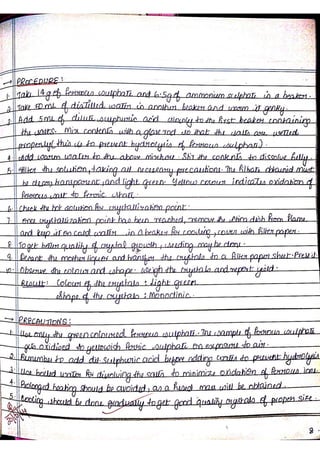 → PROCEDURE:
1. Take 14g of ferrous sulphate and 6.5g of ammonium sulphate in a beaker.
2. Take 50 mL of distilled water in another beaker and warm it gently.
3. Add 5mL of dilute sulphuric acid slowly to the first beaker containing
the salts. Mix contents with a glass rod so that the salts are wetted
properly (this is to prevent hydrolysis of ferrous sulphate).
4. Add warm water to the above mixture. Stir the contents to dissolve fully.
5. Filter the solution, taking all necessary precautions. The filtrate obtained must
be clean, transparent, and light green. Yellow colour indicates oxidation of
ferrous salt to ferric
6. Check the hot solution for crystallisation point.
7. Once crystallisation point has been reached, remove the china dish from flame
and keep it on cold water in a beaker for cooling, cover with filter paper.
8. To get better quality of crystal growth, seeding may be done.
9. Decant the mother liquor and transfer the crystals to a filter paper sheet. Press it
10. Observe the colour and shape. Weigh the crystals and report yield.
Result: Colour of the crystals : Light green.
Shape of the crystals : Monoclinic.
→ PRECAUTIONS:
1. Use only the green coloured ferrous sulphate. The sample of ferrous sulphate
gets oxidised to yellowish ferric sulphate on exposure to air.
2. Remember to add dil. sulphuric acid before adding water to prevent hydrolysis
3. Use boiled water for dissolving the salts to minimize oxidation of ferrous ions.
4. Prolonged heating should be avoided, as a fused mass will be obtained.
5. Cooling should be done gradually to get good quality crystals of proper size.